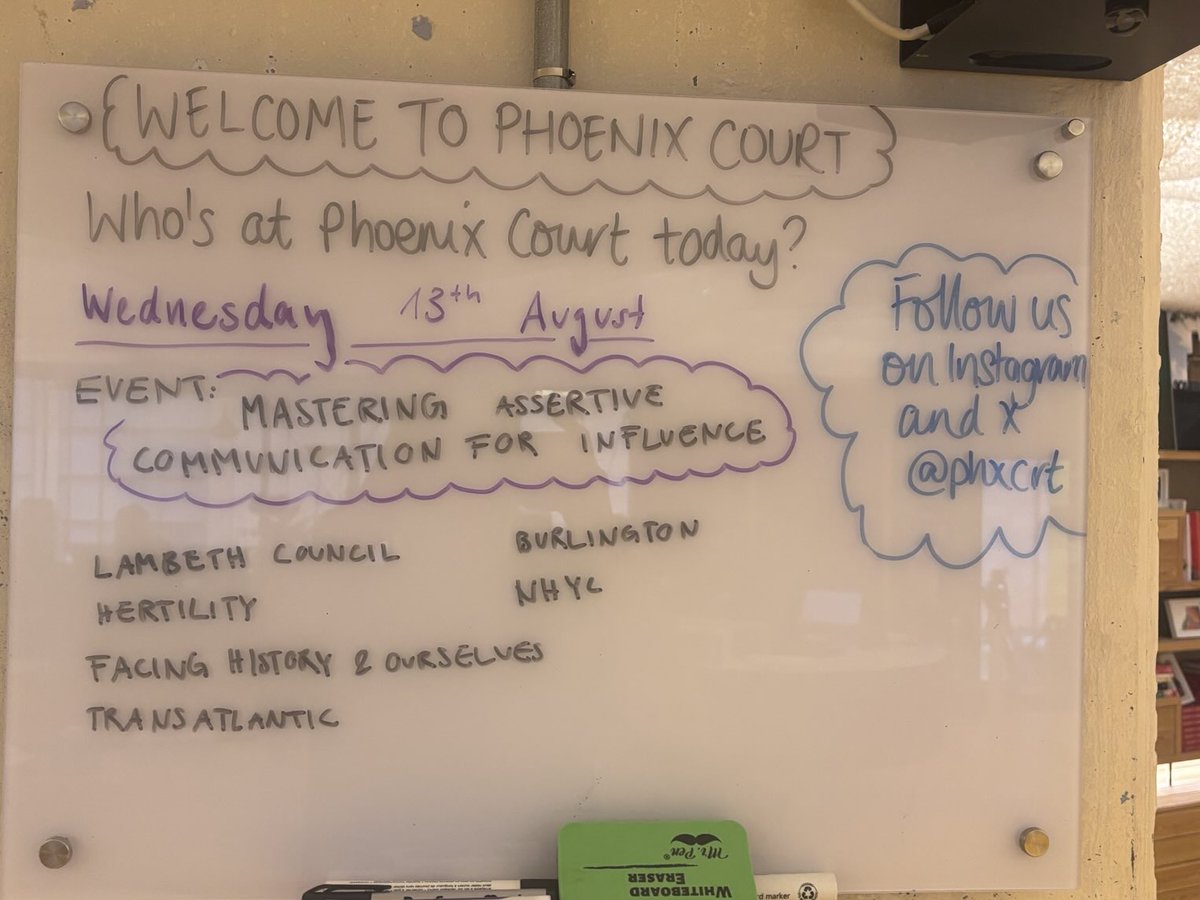 WELCOME TO PHOENIX COURT
Who's at Phoenix Court today?
Wednesday 13th August
EVENT: MASTERING ASSERTIVE
COMMUNICATION FOR INFLUENCE
Follow us
on Instagram
and X
@phxcrt
LAMBETH COUNCIL
HERTILITY
FACING HISTORY & OURSELVES
TRANSATLANTIC
BURLINGTON
NHYC
Mr. Pen®
WHITEBOARD
ERASER